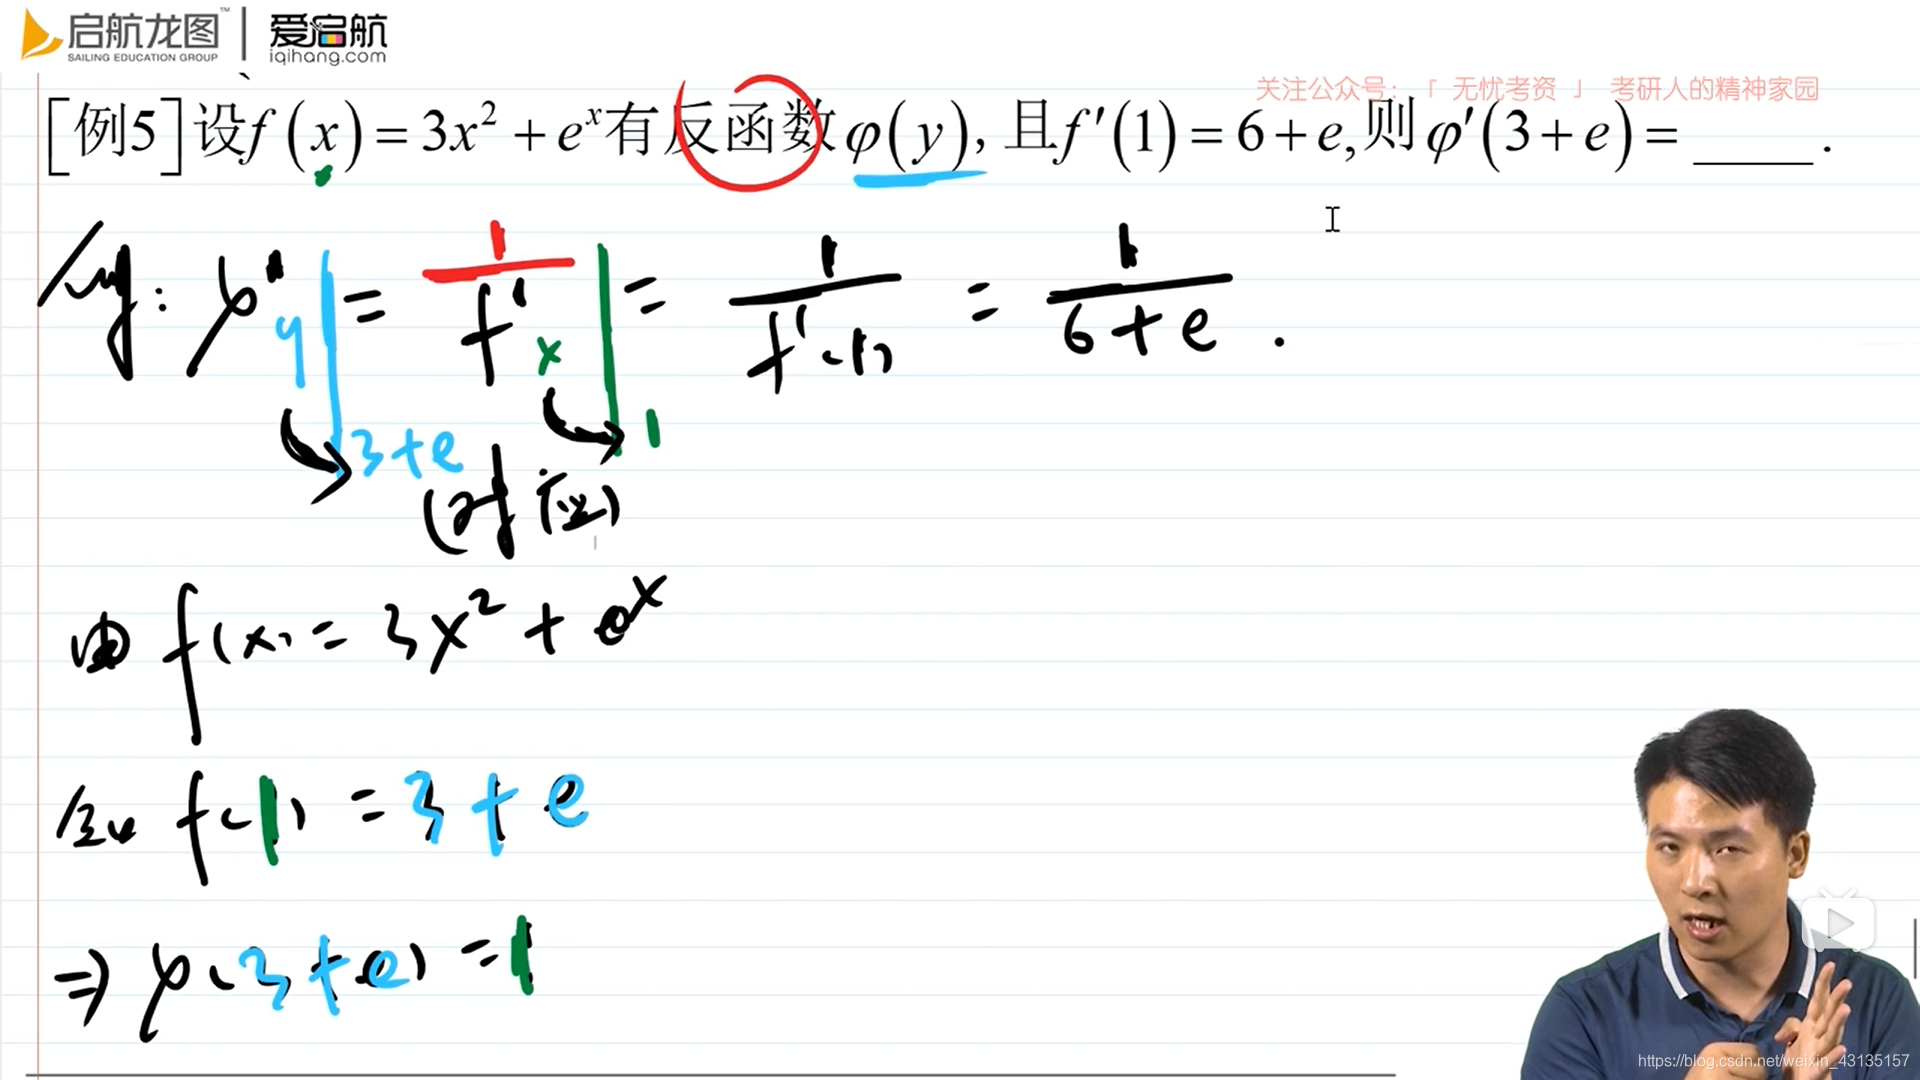 启航龙图™ | 爱启航
SAILING EDUCATION GROUP iqihang.com
关注公众号:「 无忧考资 」 考研人的精神家园
[例5]设f(x)=3x²+eˣ有反函数φ(y),且f′(1)=6+e,则φ′(3+e)=_____.
φ′y|3+e = 1/f′x|1 = 1/f′(1) = 1/6+e .
(对应)
由 f(x)=3x²+eˣ
知 f(1)=3+e
⇒ φ(3+e)=1
https://blog.csdn.net/weixin_43135157